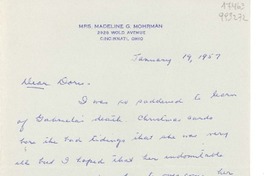 MRS. MADELINE G. MOHRMAN
2525 WOLD AVENUE
CINCINNATI, OHIO
January 19, 1957
Dear Doris -
I was so saddened to learn
of Gabriela's death. Christmas cards
bore the sad tidings that she was very
ill but I hoped that her indomitable